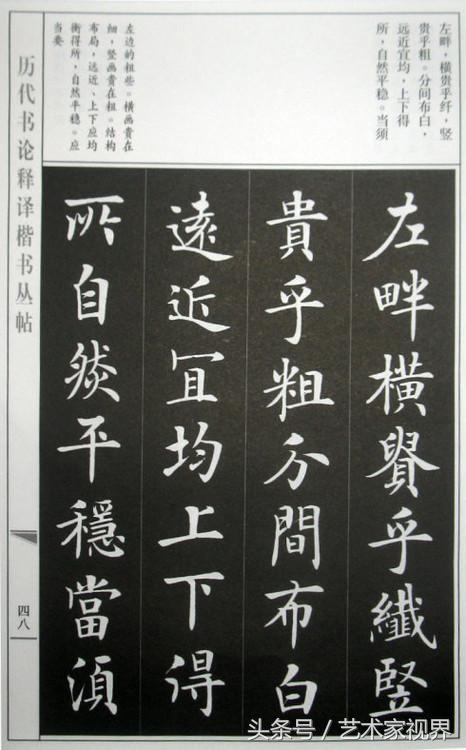 左畔，横贵乎纤，竖
贵乎粗。分间布白，
远近宜均，上下得
所，自然平稳。当须
左边的粗些。横画贵在
细，竖画贵在粗。结构
布局，远近、上下应均
衡得所，自然平稳。应
当要
左畔橫貴乎纖竪
貴乎粗分間布白
遠近冝均上下得
所自然平穩當須
历代书论释译楷书丛帖
四八
头条号／艺术家视界